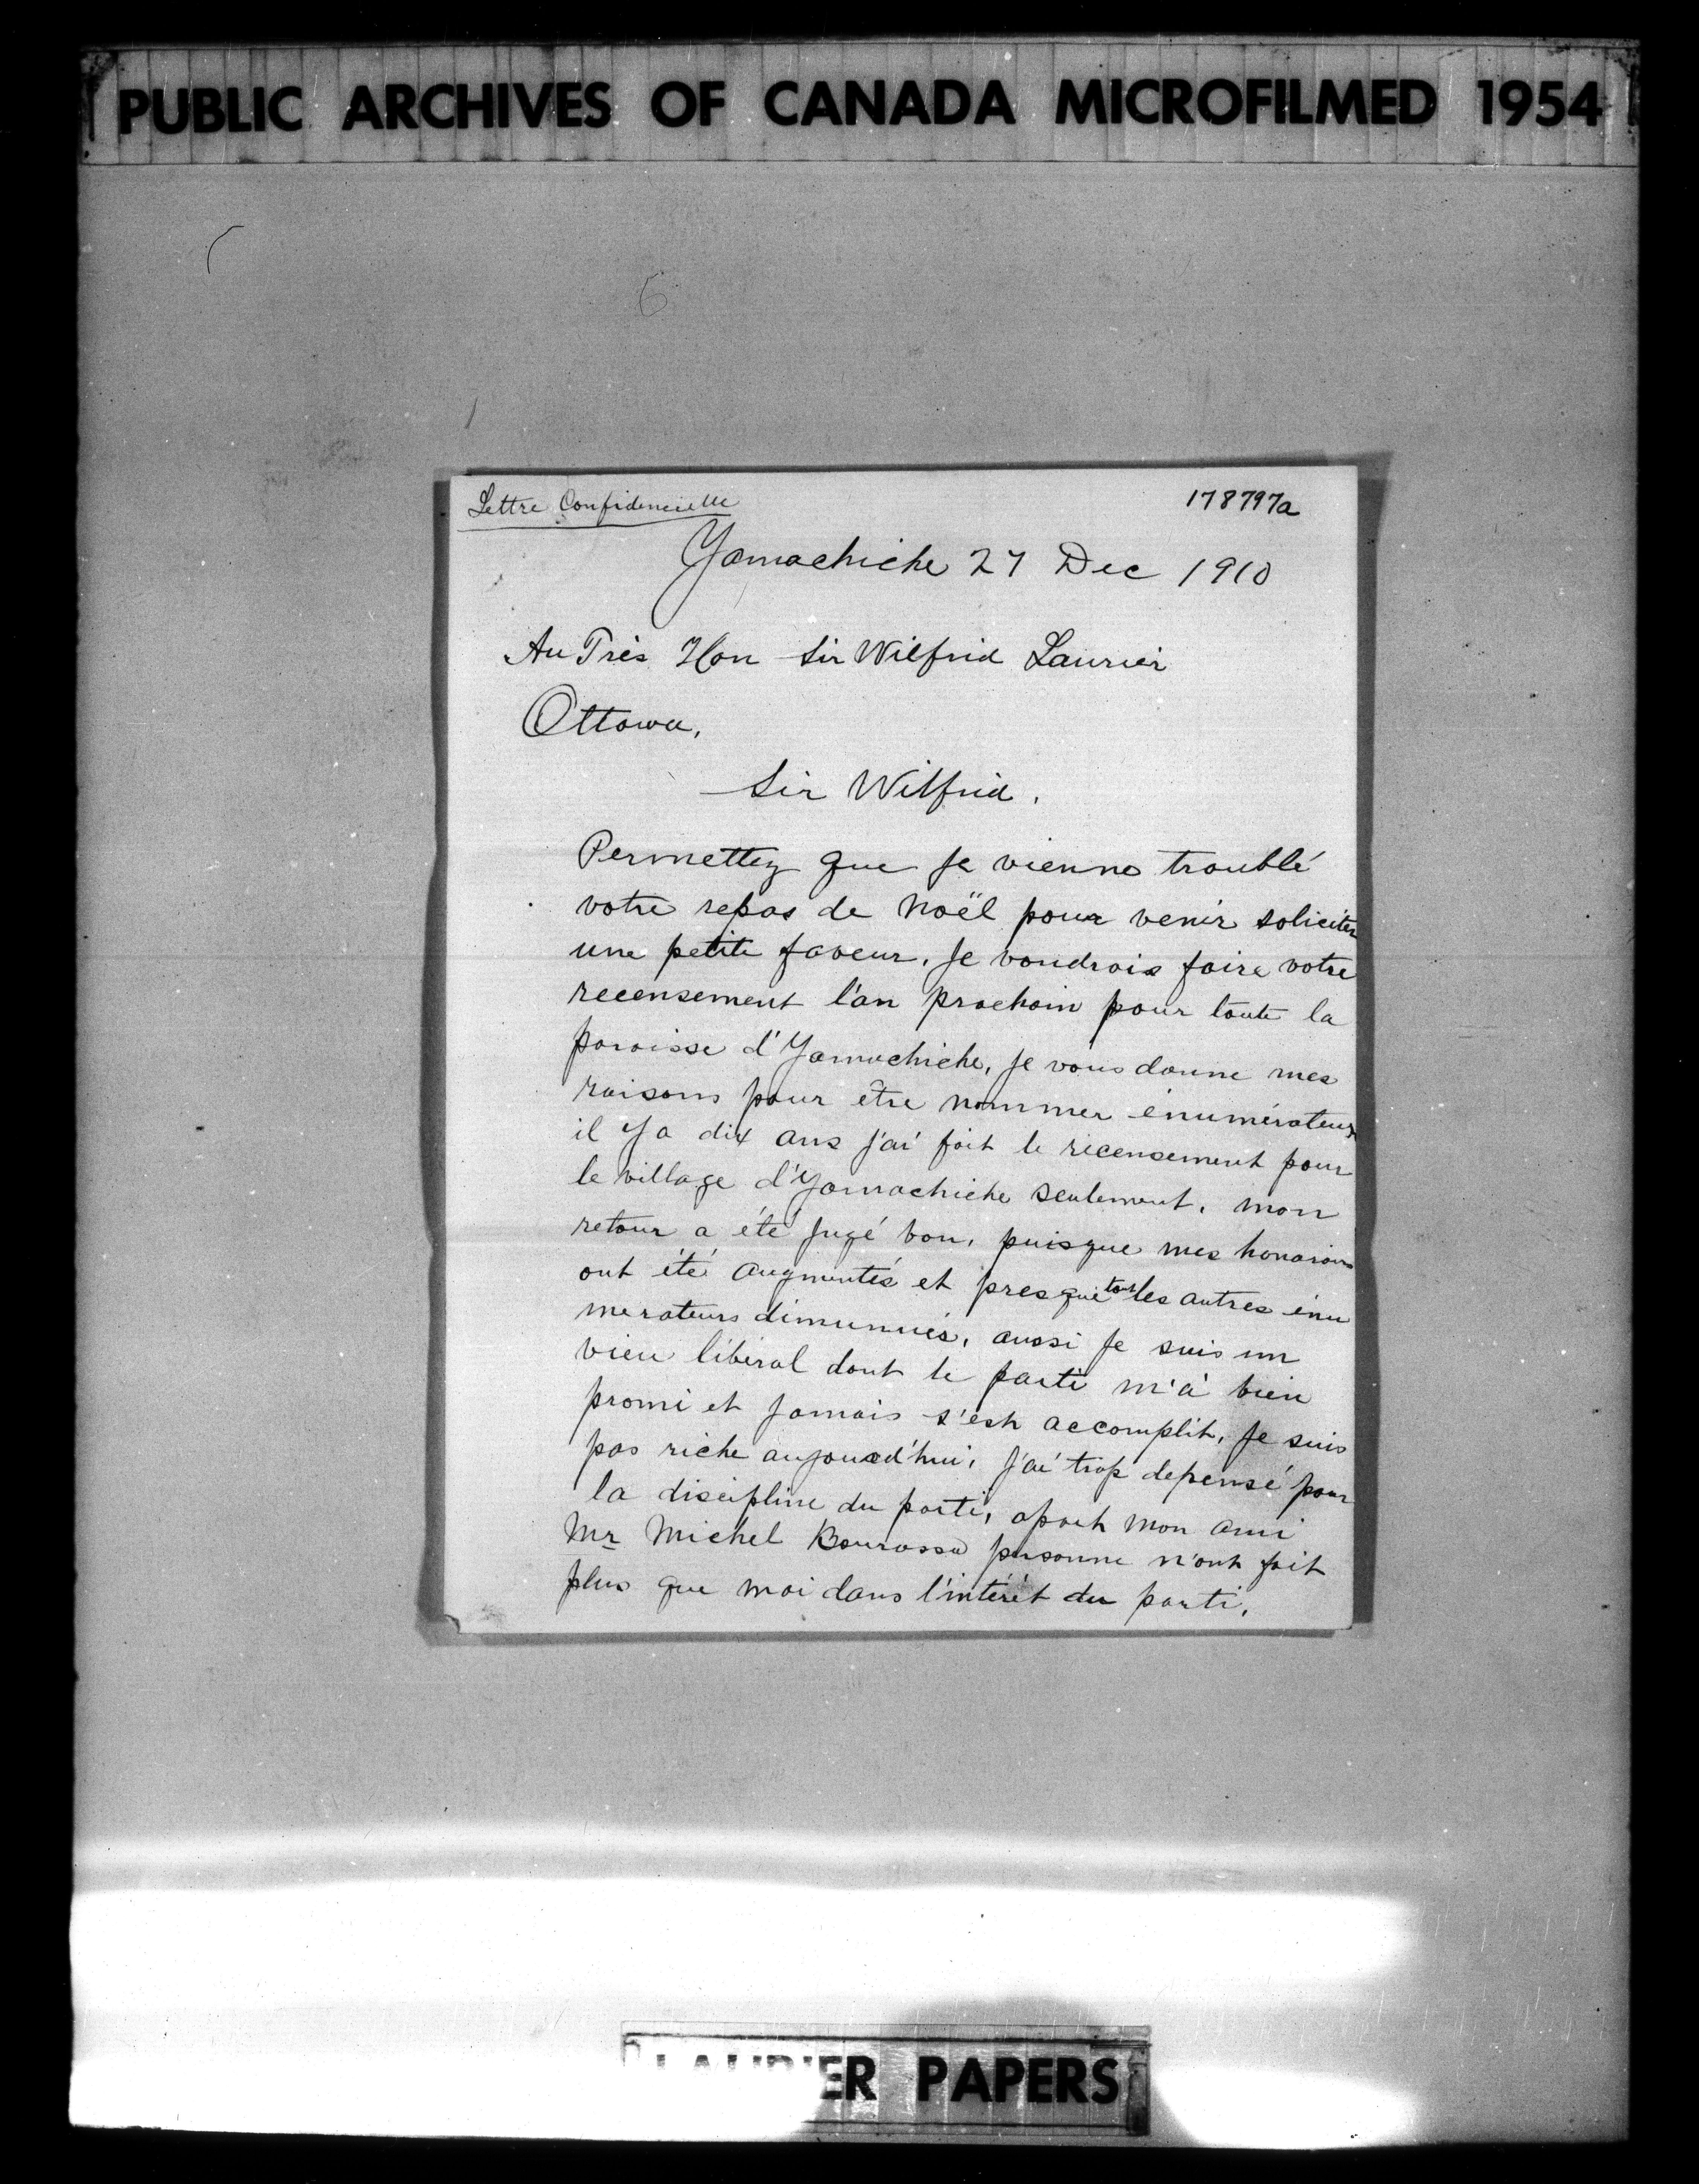 PUBLIC ARCHIVES OF CANADA MICROFILMED 1954
Lettre Confidencielle
178797a
Yamachiche 27 Dec 1910
Au Très Hon Sir Wilfrid Laurier
Ottawa,
Sir Wilfrid,
Permettez que je vienne troublé
votre repas de Noël pour venir soliciter
une petite faveur, je voudrais faire votre
recensement l'an prochain pour toute la
paroisse d'Yamachiche, je vous donne mes
raisons pour être nommer énumérateur
il y a dix ans j'ai fait le recensement pour
le village d'Yamachiche seulement, mon
retour a été jugé bon, puisque mes honoraires
ont été augmentés et presque tous les autres énu
merateurs dimunués, aussi je suis un
vieu libéral dont le parti m'a bien
promi et jamais s'est accomplit, je suis
pas riche aujourd'hui, j'ai trop depensé pour
la discipline du parti, apart mon ami
Mr Michel Bourassa personne n'ont fait
plus que moi dans l'intérêt du parti,
LAURIER PAPERS